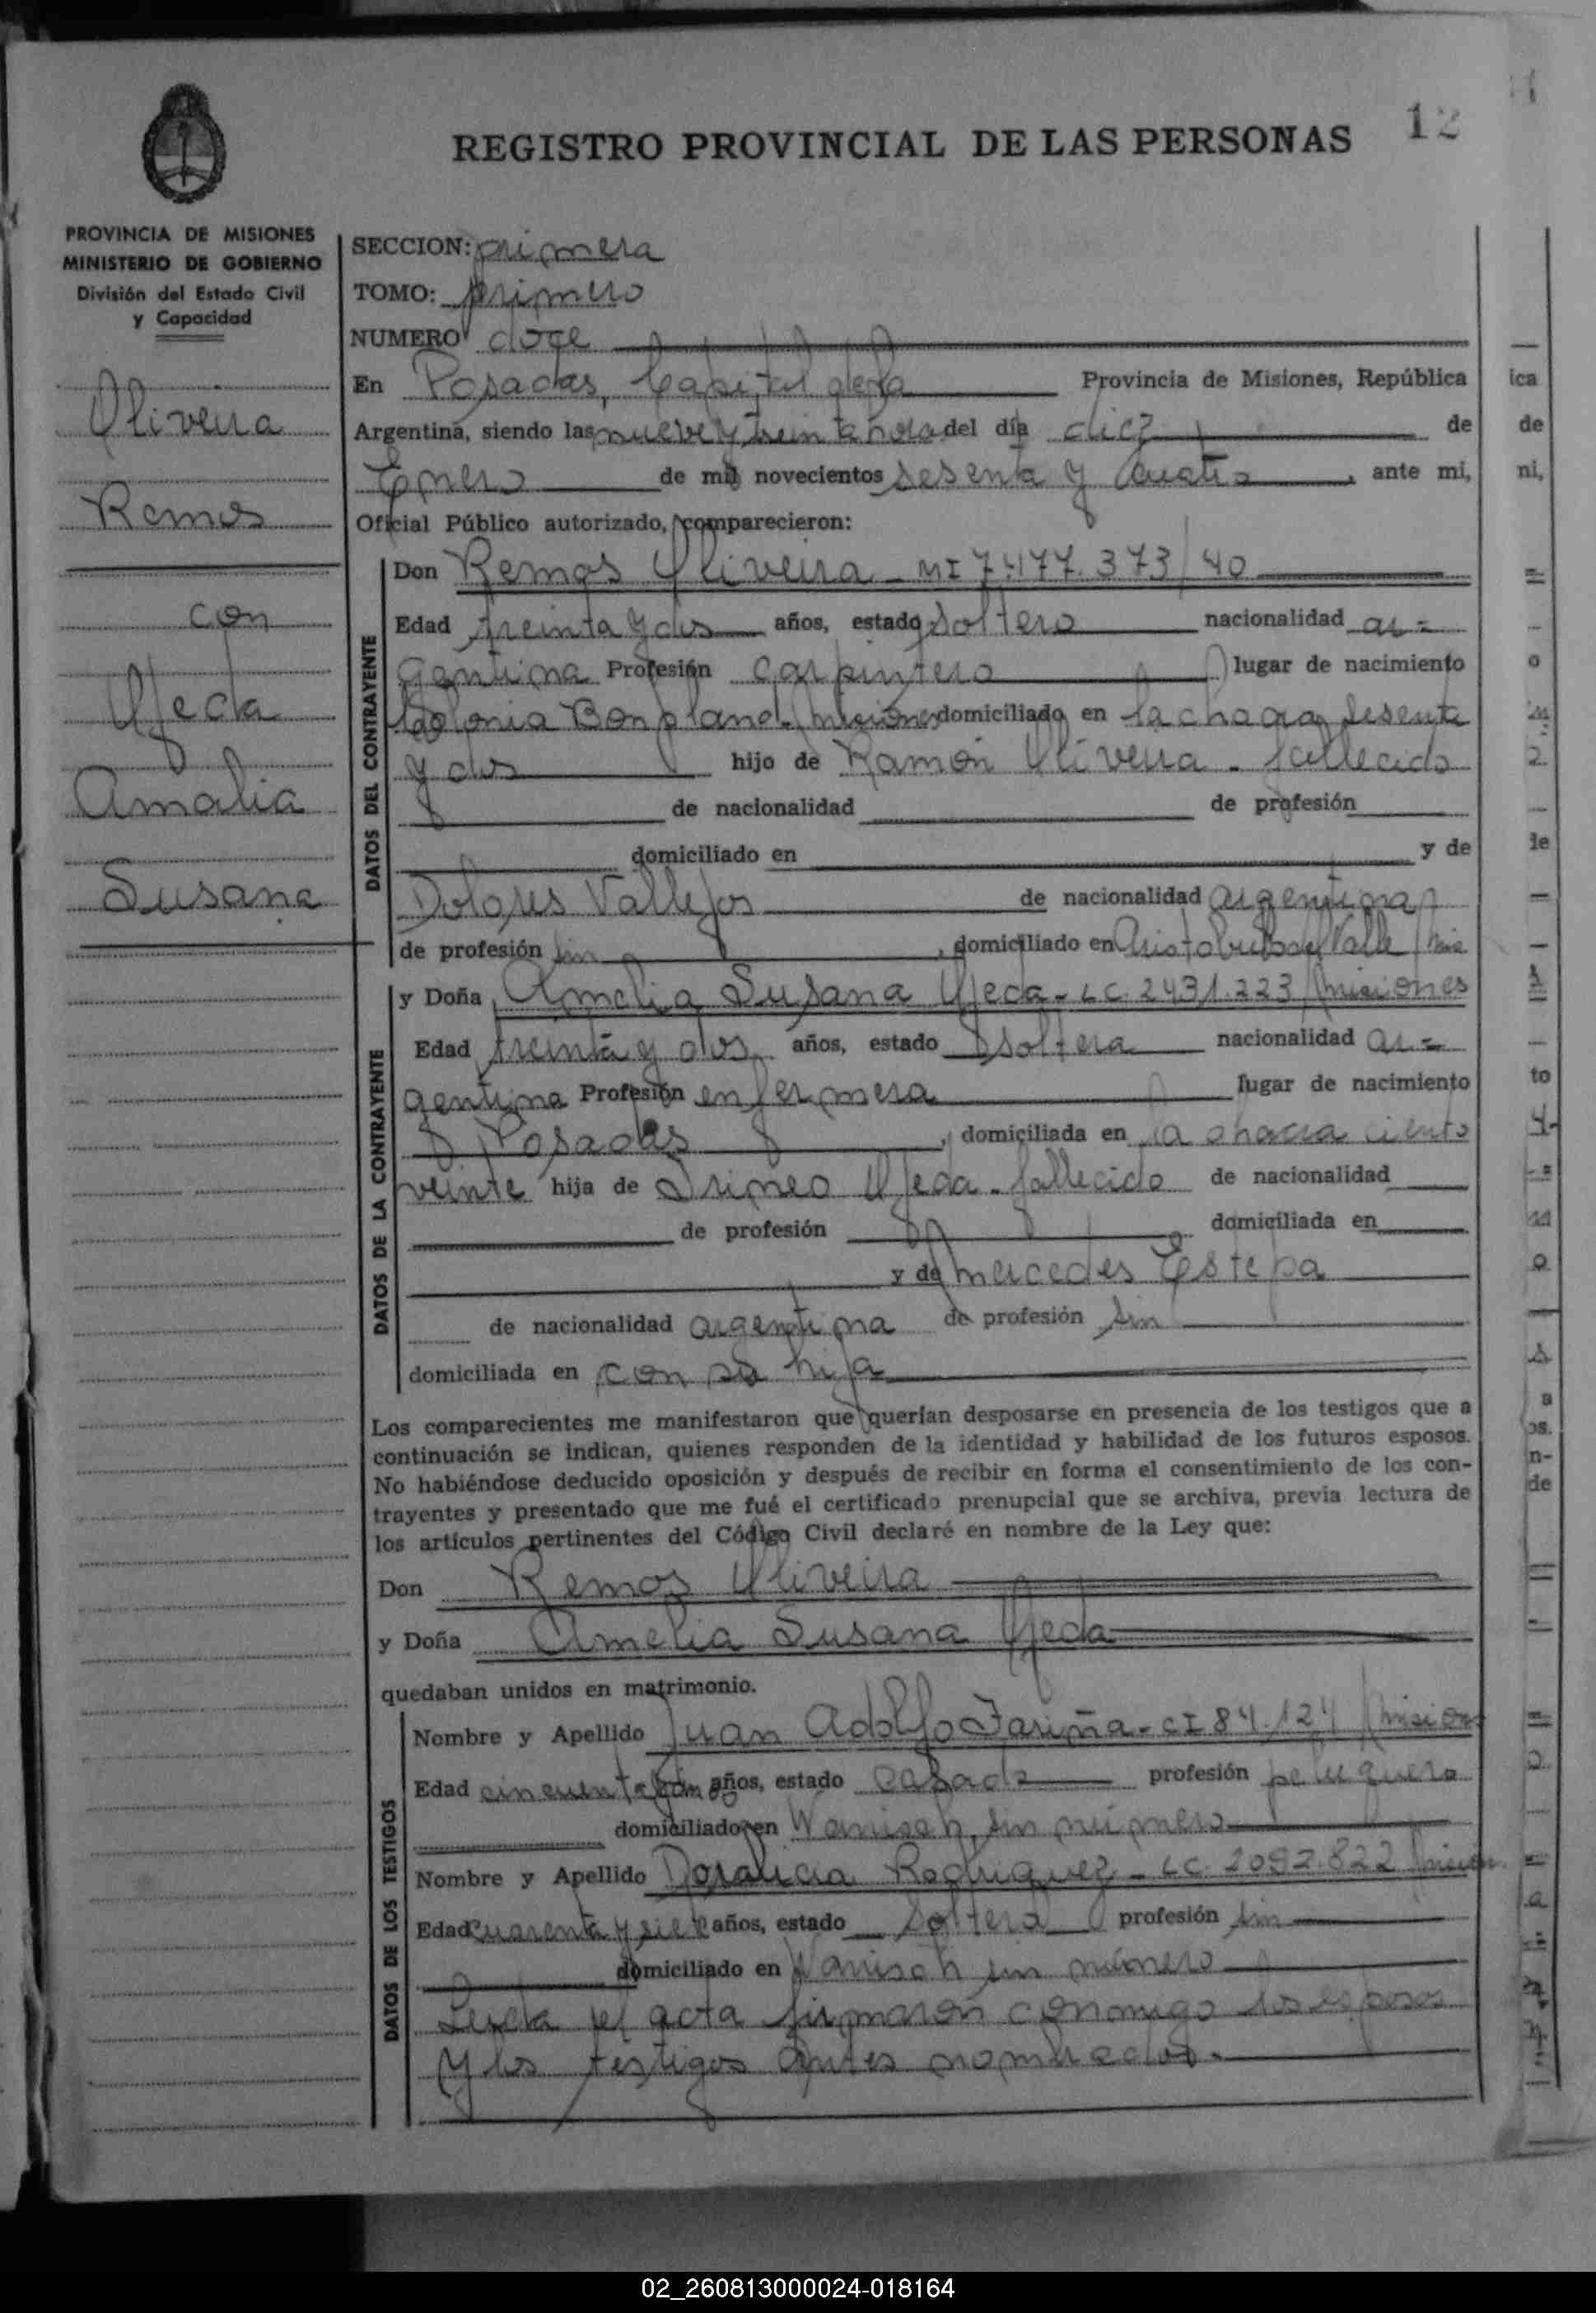 12
REGISTRO PROVINCIAL DE LAS PERSONAS
PROVINCIA DE MISIONES
MINISTERIO DE GOBIERNO
División del Estado Civil
y Capacidad
Oliveira
Remos
con
Ojeda
Amalia
Susana
SECCION: primera
TOMO: primero
NUMERO doce
En Posadas, Capital de la Provincia de Misiones, República
Argentina, siendo las nueve y treinta hora del día diez de
Enero de mil novecientos sesenta y cuatro, ante mi,
Oficial Público autorizado, comparecieron:
DATOS DEL CONTRAYENTE
Don Remos Oliveira - MI 7.477.373/40
Edad treinta y dos años, estado soltero nacionalidad ar=
gentina Profesión carpintero lugar de nacimiento
Colonia Bonpland - Misiones domiciliado en la chacra sesenta
y dos hijo de Ramón Oliveira - fallecido
de nacionalidad de profesión
domiciliado en y de
Dolores Vallejos de nacionalidad argentina
de profesión sin, domiciliado en Aristobulo del Valle/Mis
DATOS DE LA CONTRAYENTE
y Doña Amelia Susana Ojeda - LC. 2431.223/Misiones
Edad treinta y dos años, estado soltera nacionalidad ar=
gentina Profesión enfermera lugar de nacimiento
Posadas, domiciliada en la chacra ciento
veinte hija de Irineo Ojeda - fallecido de nacionalidad
de profesión domiciliada en
y de Mercedes Estepa
de nacionalidad argentina de profesión sin
domiciliada en con su hija
Los comparecientes me manifestaron que querían desposarse en presencia de los testigos que a
continuación se indican, quienes responden de la identidad y habilidad de los futuros esposos.
No habiéndose deducido oposición y después de recibir en forma el consentimiento de los con-
trayentes y presentado que me fué el certificado prenupcial que se archiva, previa lectura de
los artículos pertinentes del Código Civil declaré en nombre de la Ley que:
Don Remos Oliveira
y Doña Amelia Susana Ojeda
quedaban unidos en matrimonio.
DATOS DE LOS TESTIGOS
Nombre y Apellido Juan Adolfo Fariña - CI 84.124/Mision
Edad cincuenta años, estado casado profesión peluquero
domiciliado en Wanisch, sin número
Nombre y Apellido Doralicia Rodriguez - LC. 2092.822
Edad cuarenta y siete años, estado soltera profesión sin
domiciliado en Wanisch sin número
Leida el acta firmaron conmigo los esposos
y los testigos antes nombrados.
ica
de
ni,
le
to
os.
n-
de
02_260813000024-018164